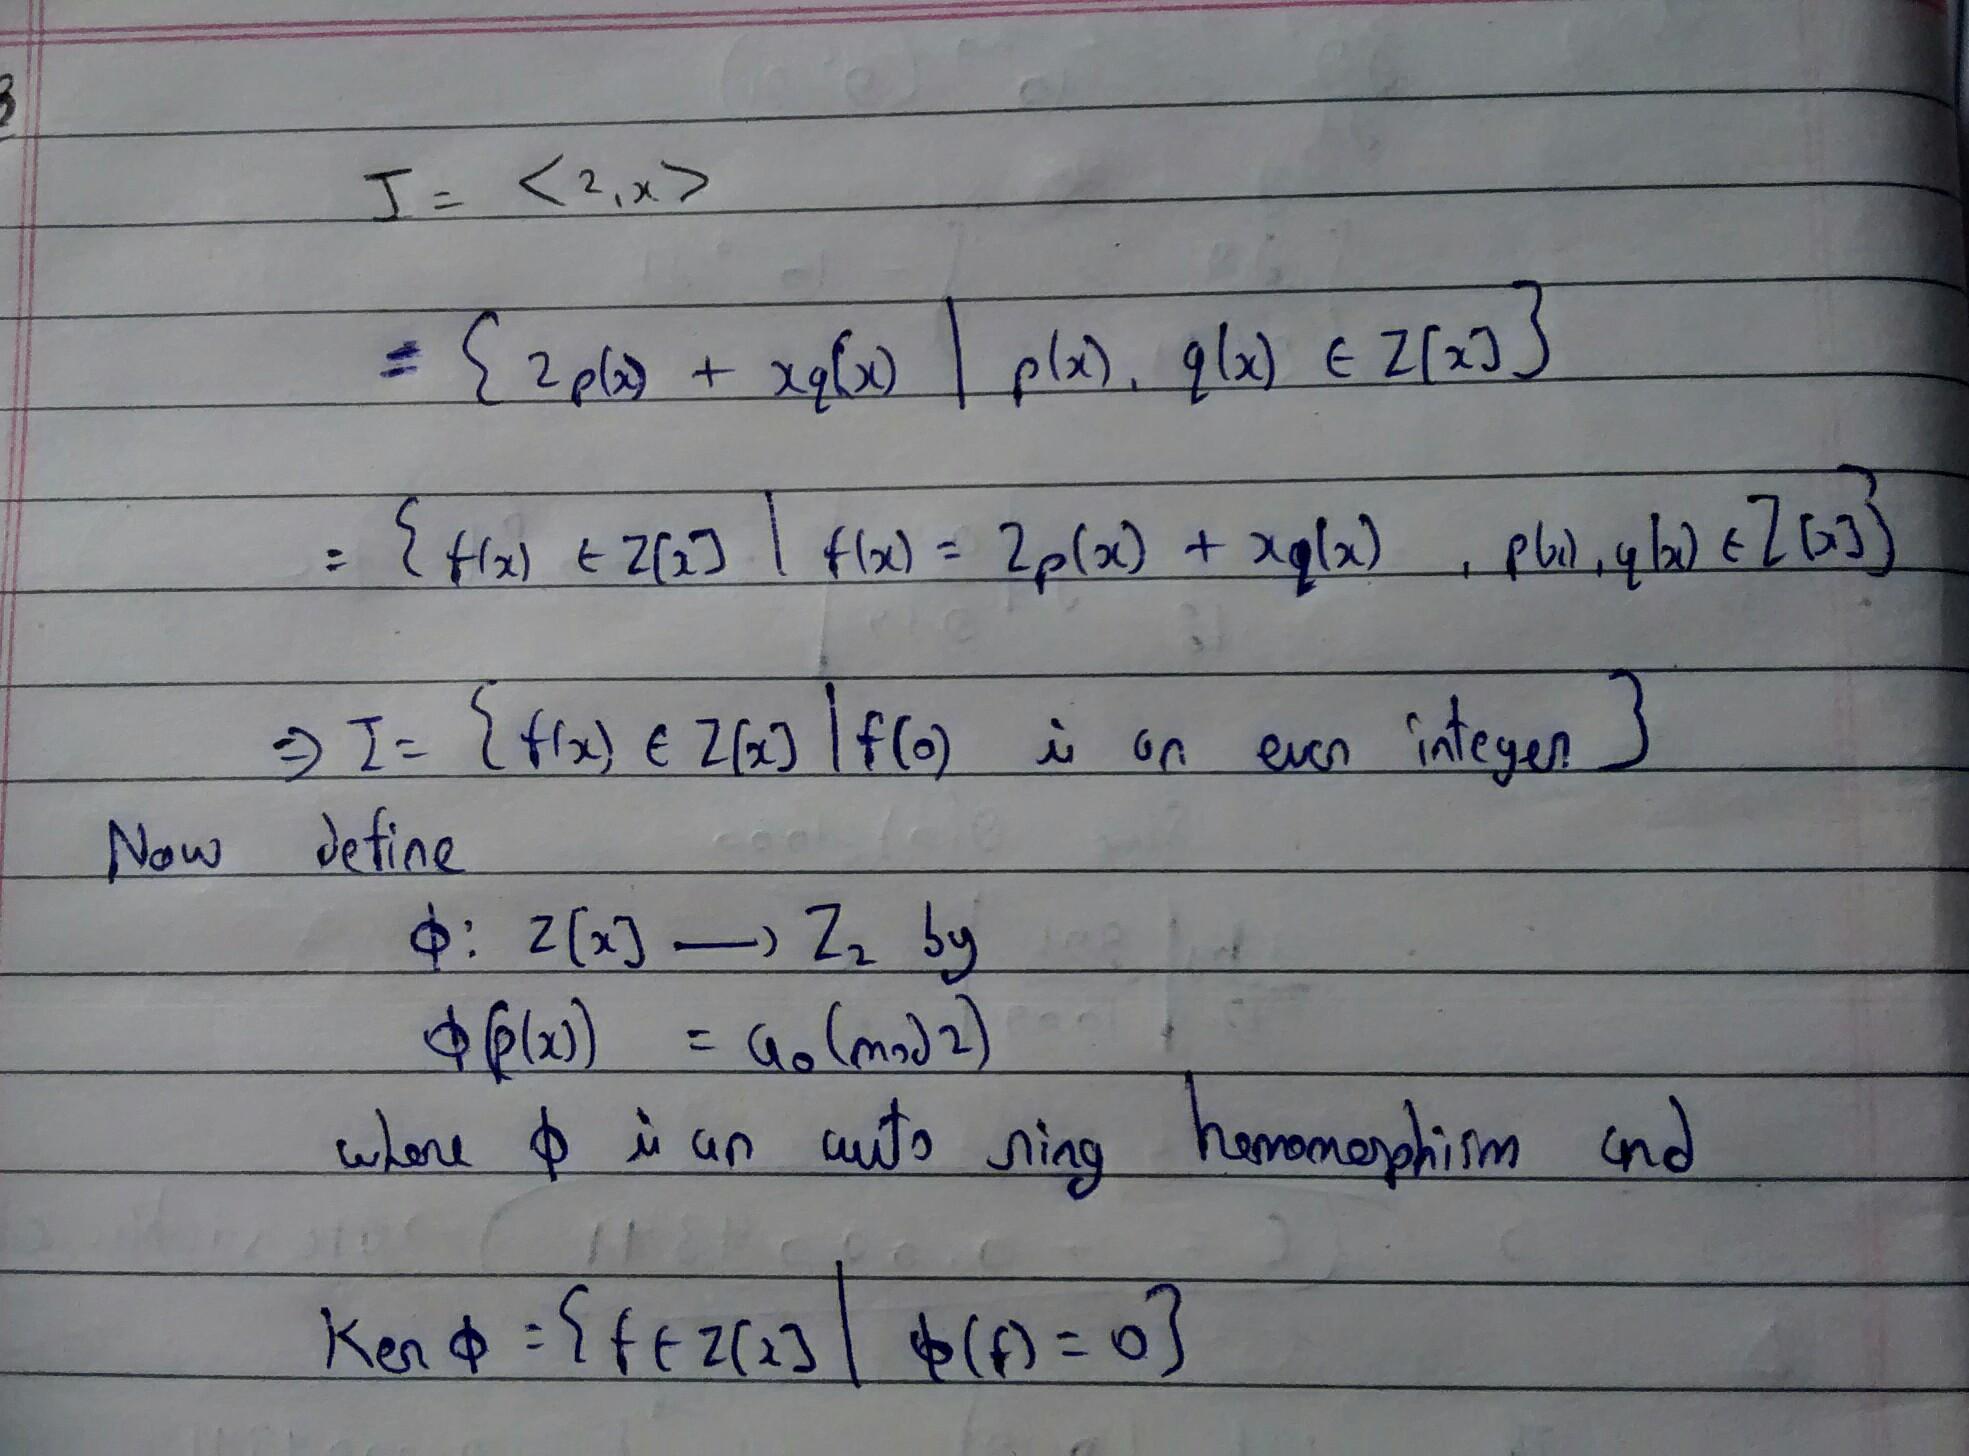 I = <2,x>
= { 2p(x) + xq(x) | p(x), q(x) ∈ Z[x] }
= { f(x) ∈ Z[x] | f(x) = 2p(x) + xq(x) , p(x), q(x) ∈ Z[x] }
⇒ I = { f(x) ∈ Z[x] | f(0) is an even integer }
Now define
ϕ: Z[x] → Z₂ by
ϕ(p(x)) = a₀(mod2)
where ϕ is an onto ring homomorphism and
Ker ϕ = { f ∈ Z[x] | ϕ(f) = 0 }